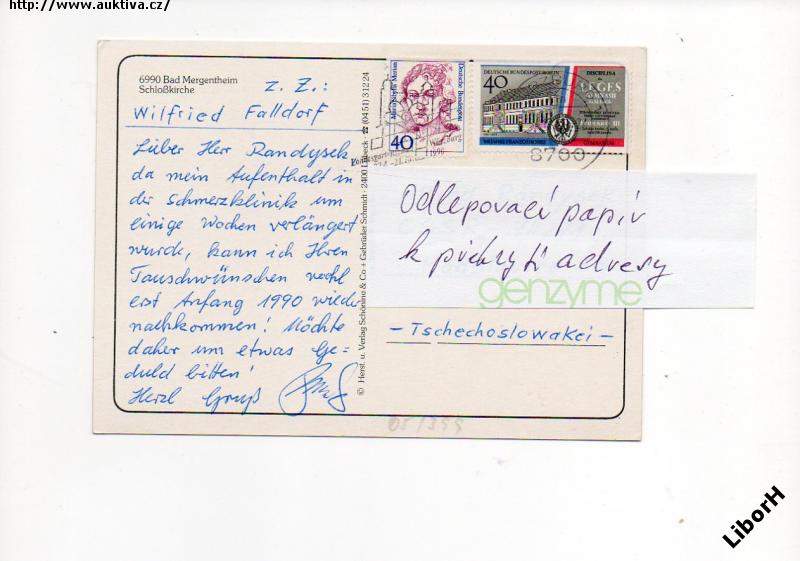 http://www.auktiva.cz/
6990 Bad Mergentheim
Schloßkirche
z. Z.:
Wilfried Falldorf
Lieber Herr Randysek
da mein Aufenthalt in
der Schmerzklinik um
einige Wochen verlängert
wurde, kann ich Ihren
Tauschwünschen wohl
erst Anfang 1990 wieder
nachkommen! Möchte
daher um etwas Ge-
duld bitten!
Herzl Gruß
© Herst. u. Verlag Schöning & Co + Gebrüder Schmidt · 2400 Lübeck · ☎ (04 51) 3 12 24
Maria Sibylla Merian
Deutsche Bundespost
40
Würzburg
1990
DEUTSCHE BUNDESPOST BERLIN
40
300 JAHRE FRANZÖSISCHES
GYMNASIUM
DISCIPLINA
LEGES
8700
Odlepovací papír
k překrytí adresy
genzyme
- Tschechoslowakei -
05/355
LiborH